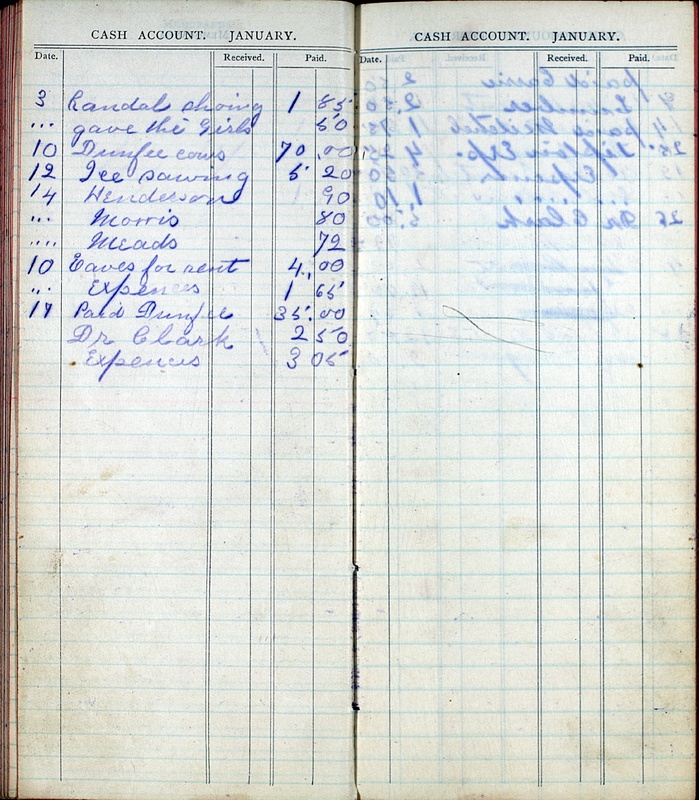 CASH ACCOUNT. JANUARY.
Date. Received. Paid.
3 Randal shoing 1 85
... gave the Girls 50
10 Dunfee cows 70.00
12 Ice sawing 5 20
14 Henderson 90
... Morris 80
.... Meads 72
10 Eaves for rent 4.00
... Expences 1 65
17 Paid Dunfee 35.00
Dr Clark 2 50
Expences 3 05
CASH ACCOUNT. JANUARY.
Date. Received. Paid.